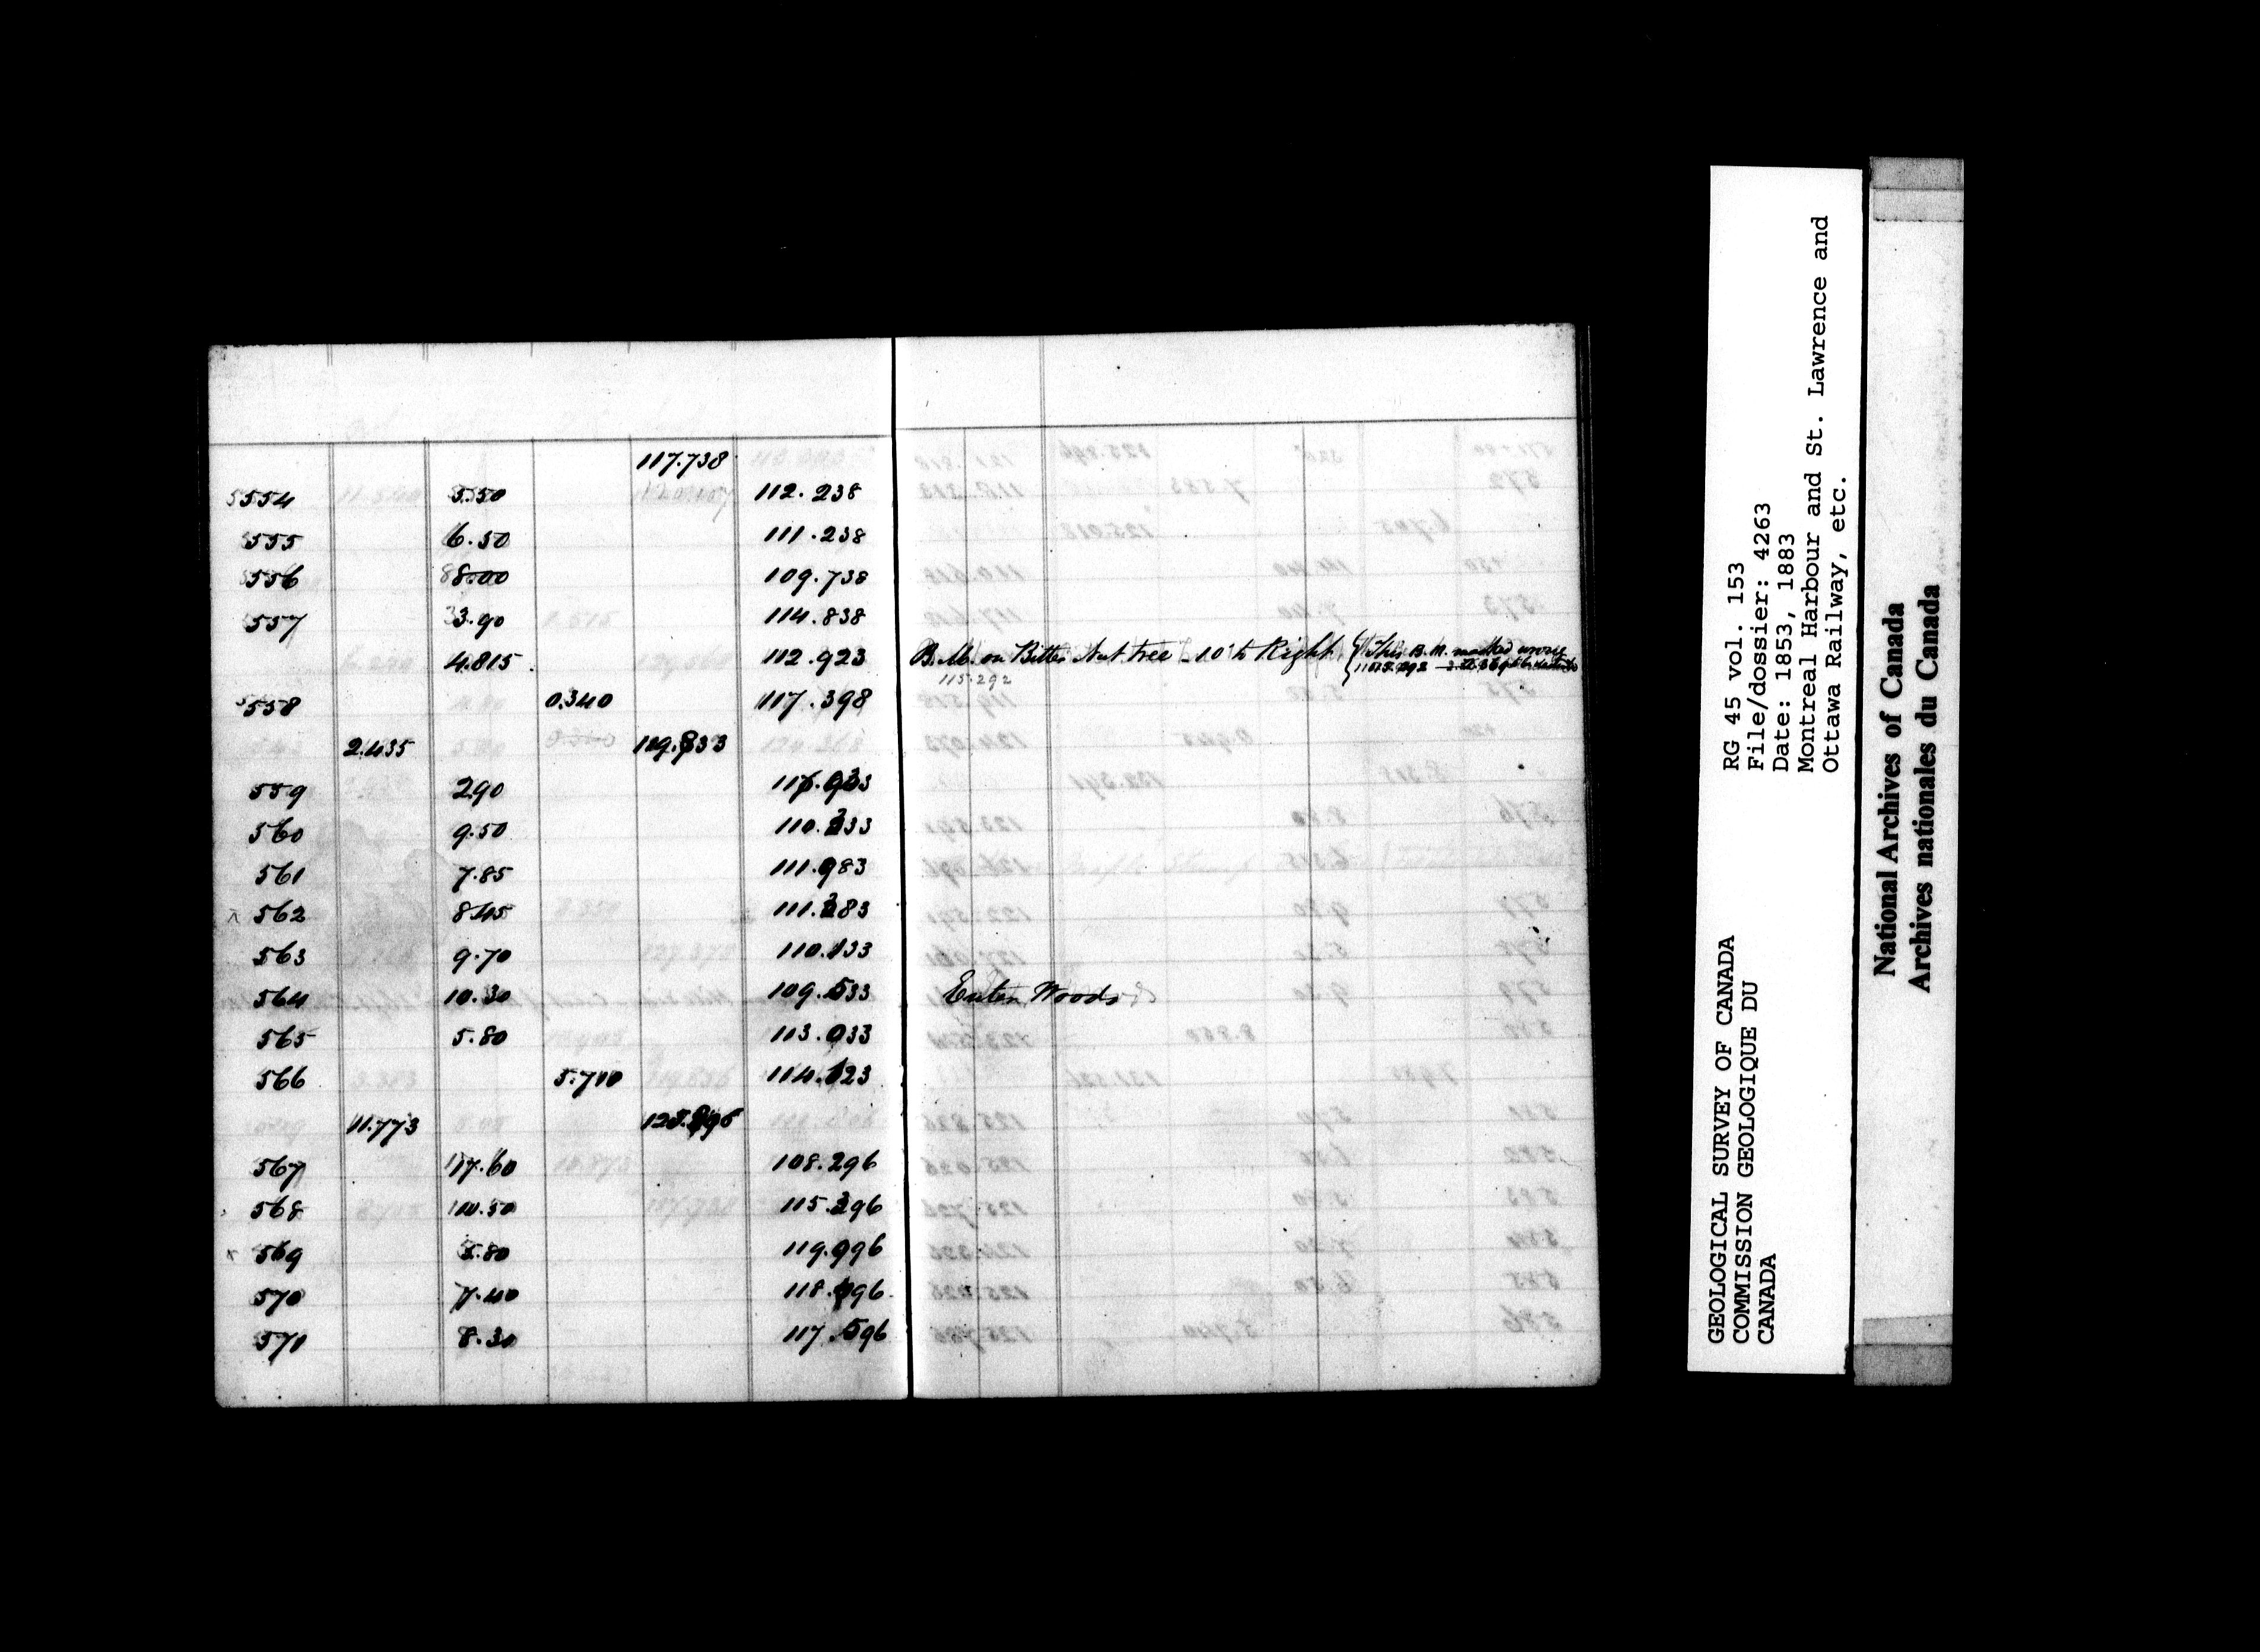 117.738
554 5.50 112.238
555 6.50 111.238
556 8.00 109.738
557 3.90 114.838
4.815 112.923 B.M. on Bitter Nut tree - 10 to Right { This B.M. marked wrong
115.292
558 0.340 117.398
2.435 119.833
559 2.90 116.933
560 9.50 110.333
561 7.85 111.983
562 8.45 111.383
563 9.70 110.133
564 10.30 109.533 Enter Woods
565 5.80 113.033
566 5.710 114.123
11.773 125.896
567 17.60 108.296
568 10.50 115.396
569 5.80 119.996
570 7.40 118.496
571 8.30 117.596
GEOLOGICAL SURVEY OF CANADA
COMMISSION GEOLOGIQUE DU
CANADA
RG 45 vol. 153
File/dossier: 4263
Date: 1853, 1883
Montreal Harbour and St. Lawrence and
Ottawa Railway, etc.
National Archives of Canada
Archives nationales du Canada